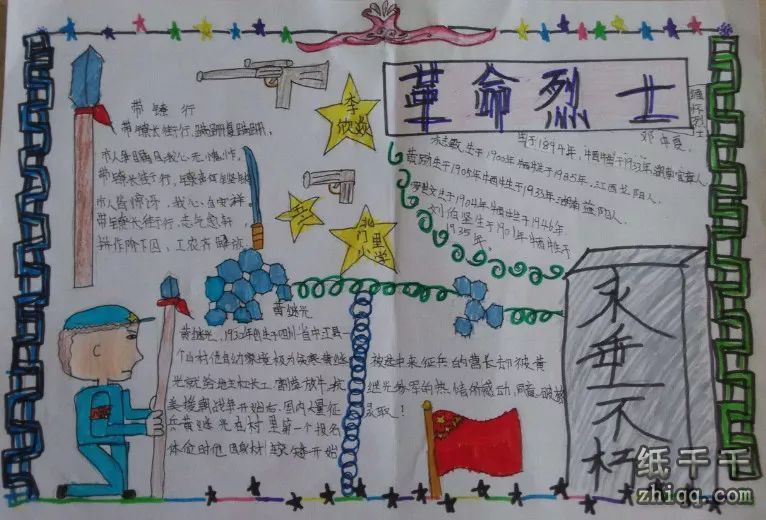 革命烈士
缅怀烈士
李欣焱
五
北门里小学
带镣行
带镣长街行，蹒跚复蹒跚，
市人争瞩目，我心无愧怍。
带镣长街行，镣声何铿锵
市人皆惊讶，我心自安详。
带镣长街行，志气愈轩，
拚作阶下囚，工农齐解放
邓中夏，
生于1894年，牺牲于1933年，湖南宜章人
生于1900年牺牲于1935年，江西弋阳人，
黄励生于1905年牺牲于1933年湖南益阳人。
生于1904年牺牲于1946年
刘伯坚生于1901年牺牲于
1935年。
黄继光
黄继光，1930年出生于四川省中江县一
个山村
光就给地主扛长工，割草放牛，抗
美援朝战争开始后，国内大量征
兵黄继光在村里第一个报名
体检时他因身材
被选中来征兵的营长却被黄
继光参军的热情所感动，同意破格
录取！
永垂不朽
纸千千
zhiqq.com